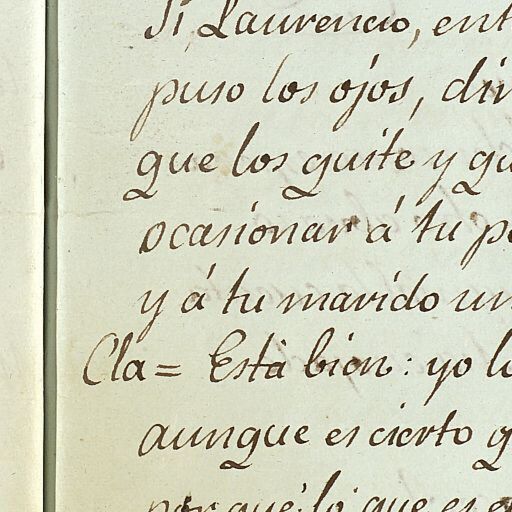 Si Laurencio, ent
puso los ojos, dir
que los quite y qu
ocasionar á tu pe
y á tu marido un
Cla= Está bien: yo lo
aunque es cierto q
porqué lo que es e